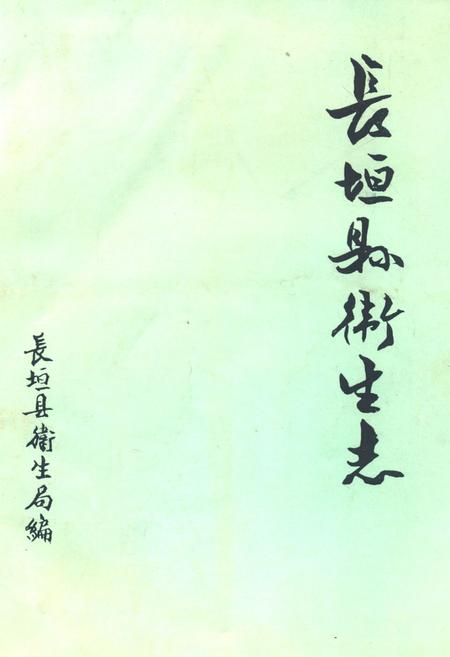 長垣縣衛生志
長垣县衛生局編